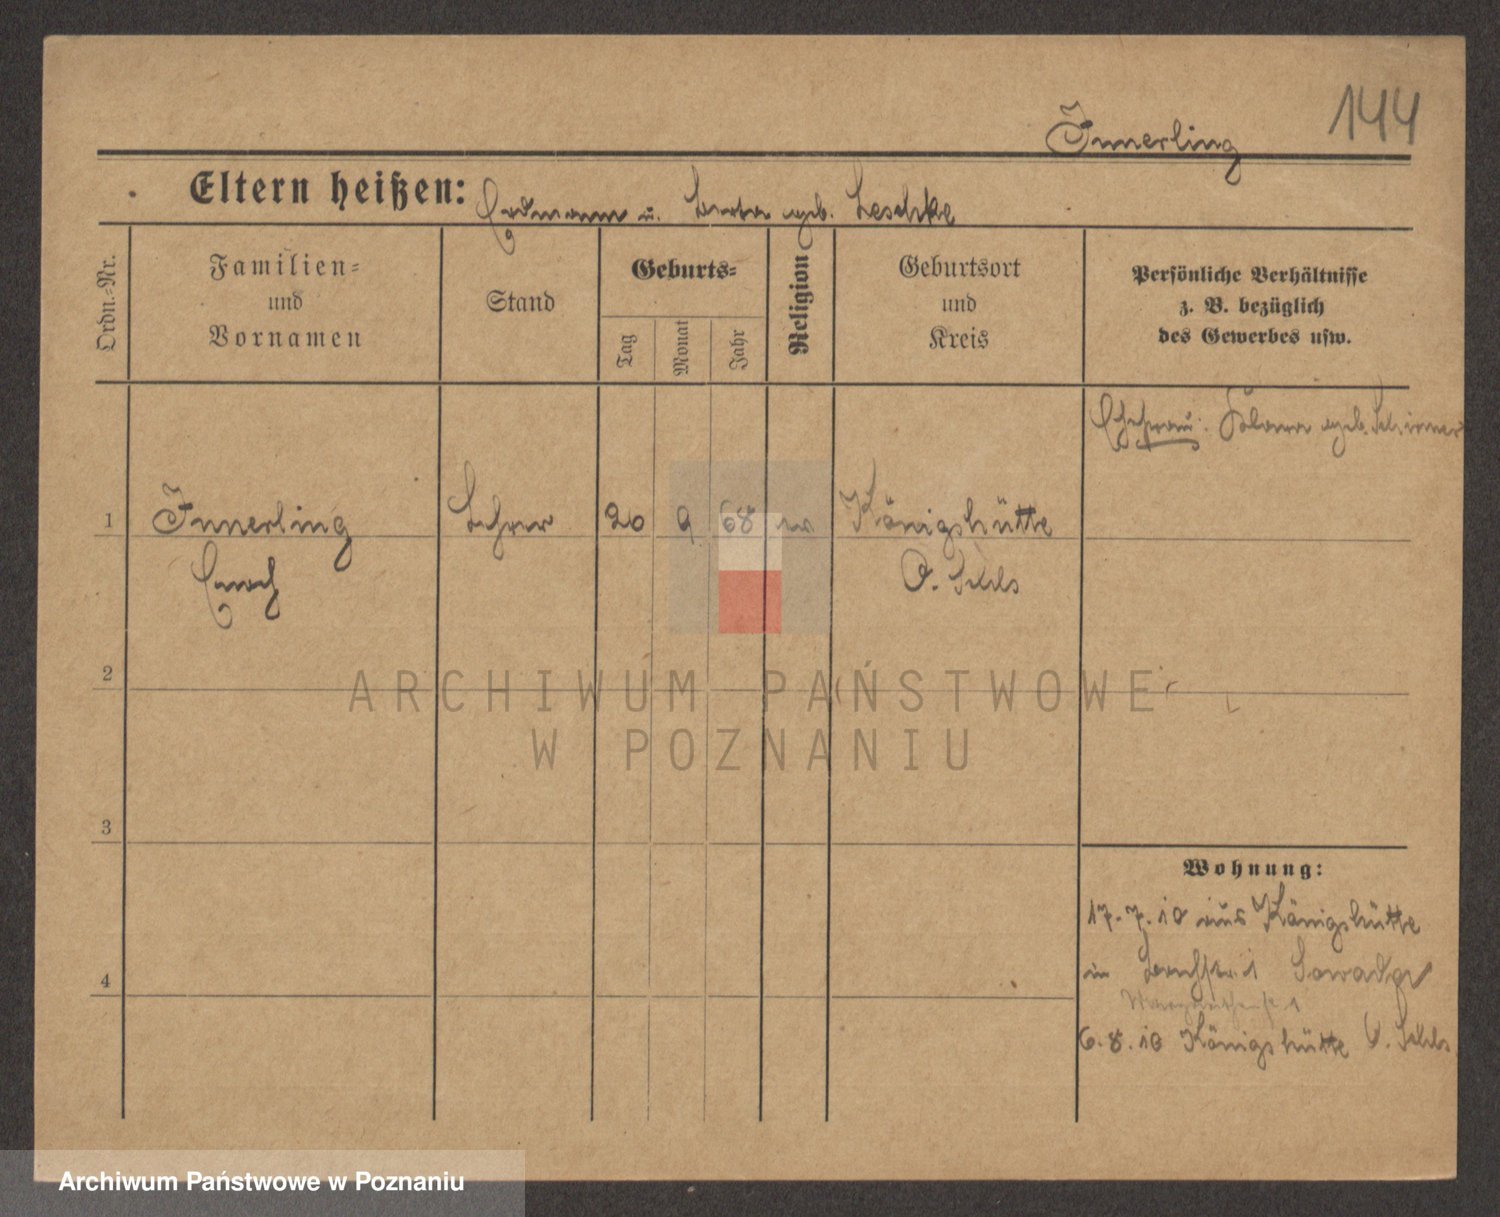 144
Immerling
Eltern heißen: Erdmann u. Berta geb. Leschke
Ordn.-Nr.
Familien- und Vornamen
Stand
Geburts-
Tag
Monat
Jahr
Religion
Geburtsort und Kreis
Persönliche Verhältnisse
z. B. bezüglich
des Gewerbes usw.
Ehefrau: Klara geb.
1 Immerling Lehrer 20 9 68 ev Königshütte
Enoch O. Schls
2
3
4
Wohnung:
17.7.10 aus Königshütte
in 1
6.8.10 Königshütte O. Schls
ARCHIWUM PAŃSTWOWE
W POZNANIU
Archiwum Państwowe w Poznaniu